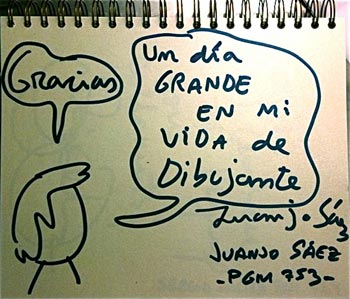 Gracias
Un día
GRANDE
EN MI
VIDA de
Dibujante
Juanjo Sáez
JUANJO SÁEZ
-PGM 753-